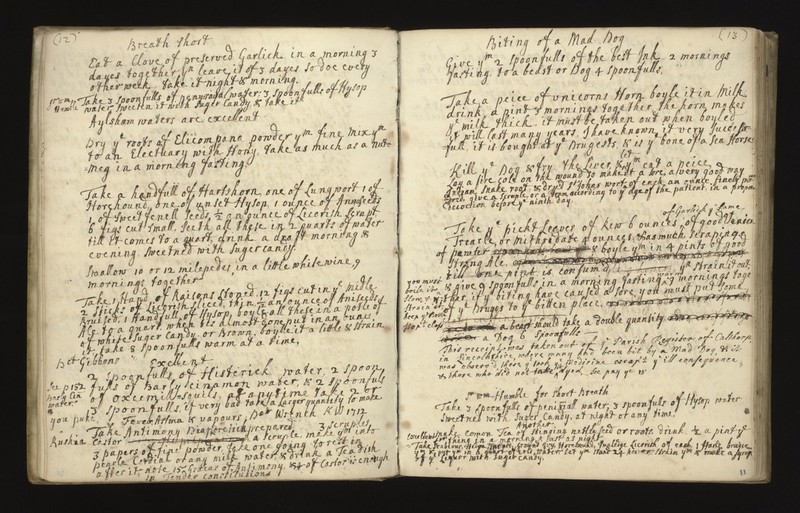 (12)
Breath short
Eat a Clove of preserved Garlick in a morning 3
dayes together, yn leave it of 3 dayes so doe every
other week. Take it night & morning.
Take 3 spoonfulls of penyroyal water, 3 spoonfulls of Hysop
water, sweeten it with Suger Candy & take it
Aylsham waters are excellent
Dry ye roots of Elicompane powder ym fine, mix ym
to an Electuary with Hony. Take as much as a nut-
meg in a morning fasting
Take a handfull of Hartshorn, one of Lungwort 1 of
Horehound, one of unset Hysop 1 ounce of Anniseeds
1 of sweet fenell seeds, ½ an ounce of Licorish scrapt
6 figs cut small, seeth all these in 2 quarts of water
till it comes to a quart, drink a draft morning &
evening sweetned with Sugercandy.
Swallow 10 or 12 milepedes, in a little white wine, 9
mornings together
Take 1 hand. of Raisons stoned, 12 figs cut in ye midle
2 sticks of Licorish sliced thin, ½ an ounce of Aniseeds
Bruised 1 handfull of Hysop, boyle all these in a pott of
Ale to a quart, when tis almost done put in an ounc.
of white Suger Candy, or Brown, boyle it a little & strain
it, take 8 spoonfulls warm at a time,
Bet Gibbons Excellent
2 spoonfulls of Histerick water, 2 spoon
fulls of Barly Cinamon water, & 2 spoonfuls
of Oximil of Squils, at any time take 2 or
3 spoonfulls, if very bad take a larger quantity to make
you puke
See p152
water
Feverish & vapours, Dor Wrench KW 1712
Take Antimony Diaphoretick prepared 3 scruples
Ruskia Castor a scruple, make ym into
3 papers of fine powder, take one going to rest in
pearle Cordial or any milk water, & drink a Tea dish
after it, note 15 Graines of Antimony & 4 of Castor is enough
in Tender constitutions
(13)
Biting of a Mad Dog
Give ym 2 spoonfulls of the best Ink 2 mornings
fasting. to a beast or Dog 4 spoonfulls.
Take a peice of unicorns Horn boyle it in Milk
drink a pint 9 mornings together the horn makes
ye milk thick. it must be taken out when boyled
It will last many years, I have known it very succesf
full, it is bought at ye Drugests, & is ye bone of a Sea Horse
Kill ye Dog & fry the Liver & let ym eat a peice.
Lay a fire Cole on the wound to make it a sore, a very good way
snake root & dry'd St Johns wort of each an ounce, finely
give a scruple or a dram according to ye age of the patient, in a proper
Decoction before ye ninth day.
Take ye pickt Leaves of Rew 6 ounces, of Garlick ye same of good Venice
Treacle or Mithridate 4 ounces, & as much scrapings
of pewter & boyle ym in 4 pints of good
strong Ale,
till one pint is consum'd, yn strain it out,
& give 9 spoonfulls in a morning fasting, 7 mornings toge
ther, if ye biting have caused a sore, you must put some
of ye Druges to ye bitten place.
a beast should take a double quantity
a Dog 6 spoonfulls
you must
This receipt was taken out of ye Parish Register of Calthorp
in Lincolnshire, where many had been bit by a Mad Dog, & it
was observd those yt took ye medicine escap'd ye ill consequence,
& those who did not take dyed.
Humble for short Breath
Take 3 spoonfuls of peniriall water, 3 spoonfuls of Hysop water
Sweetned with Suger Candy, at night or any time.
Another
Make Comon Tea of stinging nettle seed or roots. drink ½ a pint of
it fasting in a morning & last at night.
of ye Liquor with Suger Candy.